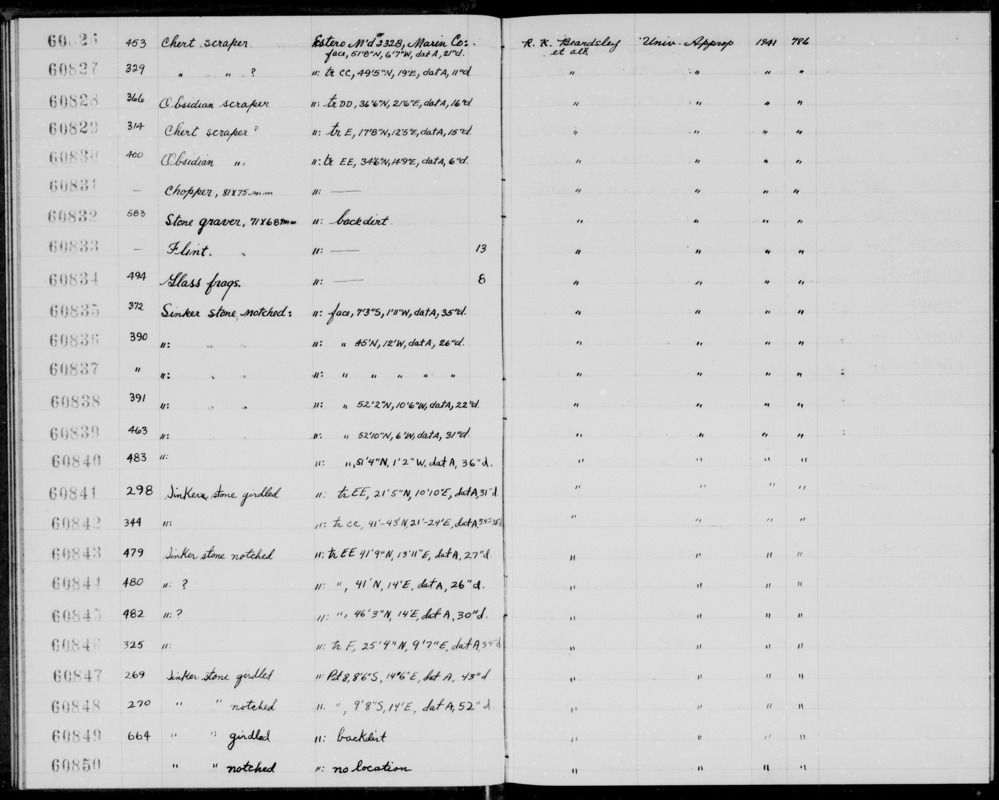 60826 453 Chert scraper Estero M'd #2328, Marin Co: R. K. Beardsley Univ. Approp 1941 786
face, 51'8"N, 6'7"W, dat A, 21"d. et alk
60827 329 " " ? ": tr CC, 49'5"N, 19'E, dat A, 11"d " " " "
60828 366 Obsidian scraper ": tr DD, 36'6"N, 21'6"E, dat A, 16"d " " " "
60829 314 Chert scraper? ": tr E, 17'8"N, 12'5"E, dat A, 15"d " " " "
60830 400 Obsidian " ": tr EE, 34'6"N, 14'9"E, dat A, 6"d. " " " "
60831 — Chopper, 81X75mm ": — " " " "
60832 583 Stone graver, 71X68mm ": backdirt " " " "
60833 — Flint. ": — 13 " " " "
60834 494 Glass frags. ": — 8 " " " "
60835 372 Sinker stone, notched: ": face, 7'3"S, 1'11"W, dat A, 35"d. " " " "
60836 390 ": " " ": " 45'N, 12'W, dat A, 26"d. " " " "
60837 " ": " " ": " " " " " " " " "
60838 391 ": " " ": " 52'2"N, 10'6"W, dat A, 22"d. " " " "
60839 463 ": ": " 52'10"N, 6'W, dat A, 31"d " " " "
60840 483 ": ": ", 51'4"N, 1'2"W, dat A, 36"d. " " " "
60841 298 Sinkers, stone girdled ": tr EE, 21'5"N, 10'10"E, dat A, 31"d " " " "
60842 344 ": ": tr CC, 41'-43'N, 21'-24'E, dat A, " " " "
60843 479 Sinker stone notched ": tr EE 41'9"N, 13'11"E, dat A, 27"d. " " " "
60844 480 ": ? ": ", 41'N, 14'E, dat A, 26"d. " " " "
60845 482 ": ? ": ", 46'3"N, 14'E, dat A, 30"d " " " "
60846 325 ": ": tr F, 25'4"N, 9'7"E, dat A, 34"d " " " "
60847 269 Sinker stone girdled ": Pit 8, 8'6"S, 14'6"E, dat A, 43"d " " " "
60848 270 " " notched ": ", 9'8"S, 14'E, dat A, 52"d " " " "
60849 664 " " girdled ": backdirt " " " "
60850 " " notched ": no location " " " "